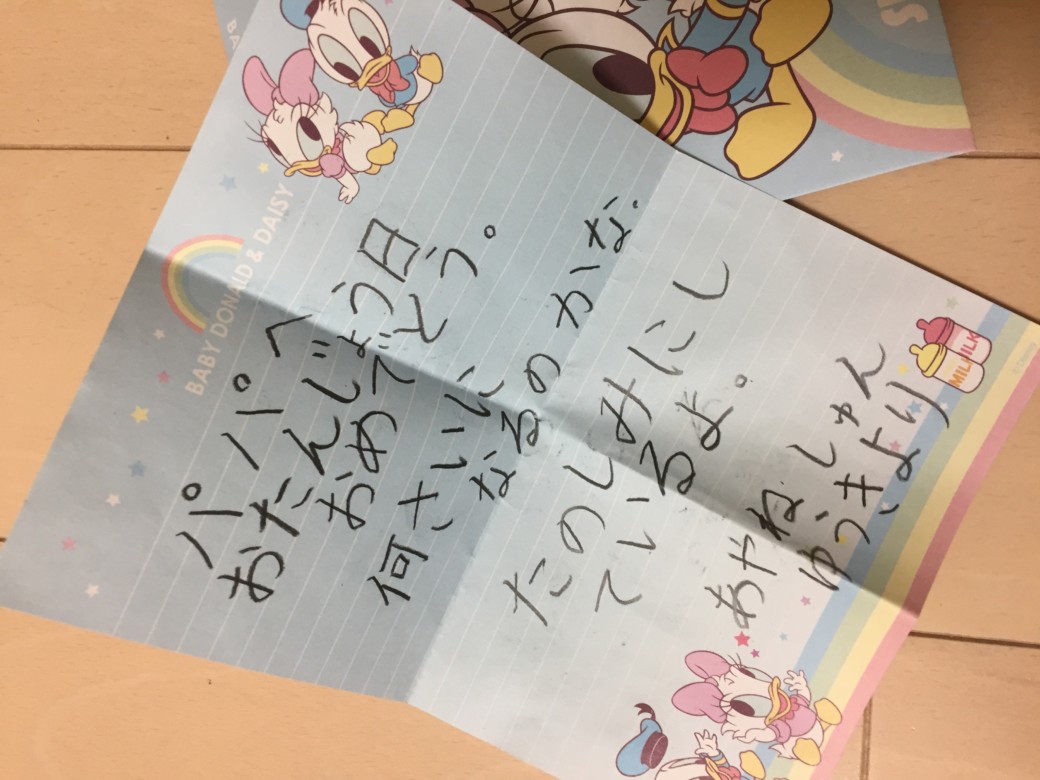 パパへ
おたんじょう日
おめでとう。
何さいに
なるのかな.
たのしみにし
ているよ。
あやね しゅん
ゆづきより
BABY DONALD & DAISY
MILK
MILK